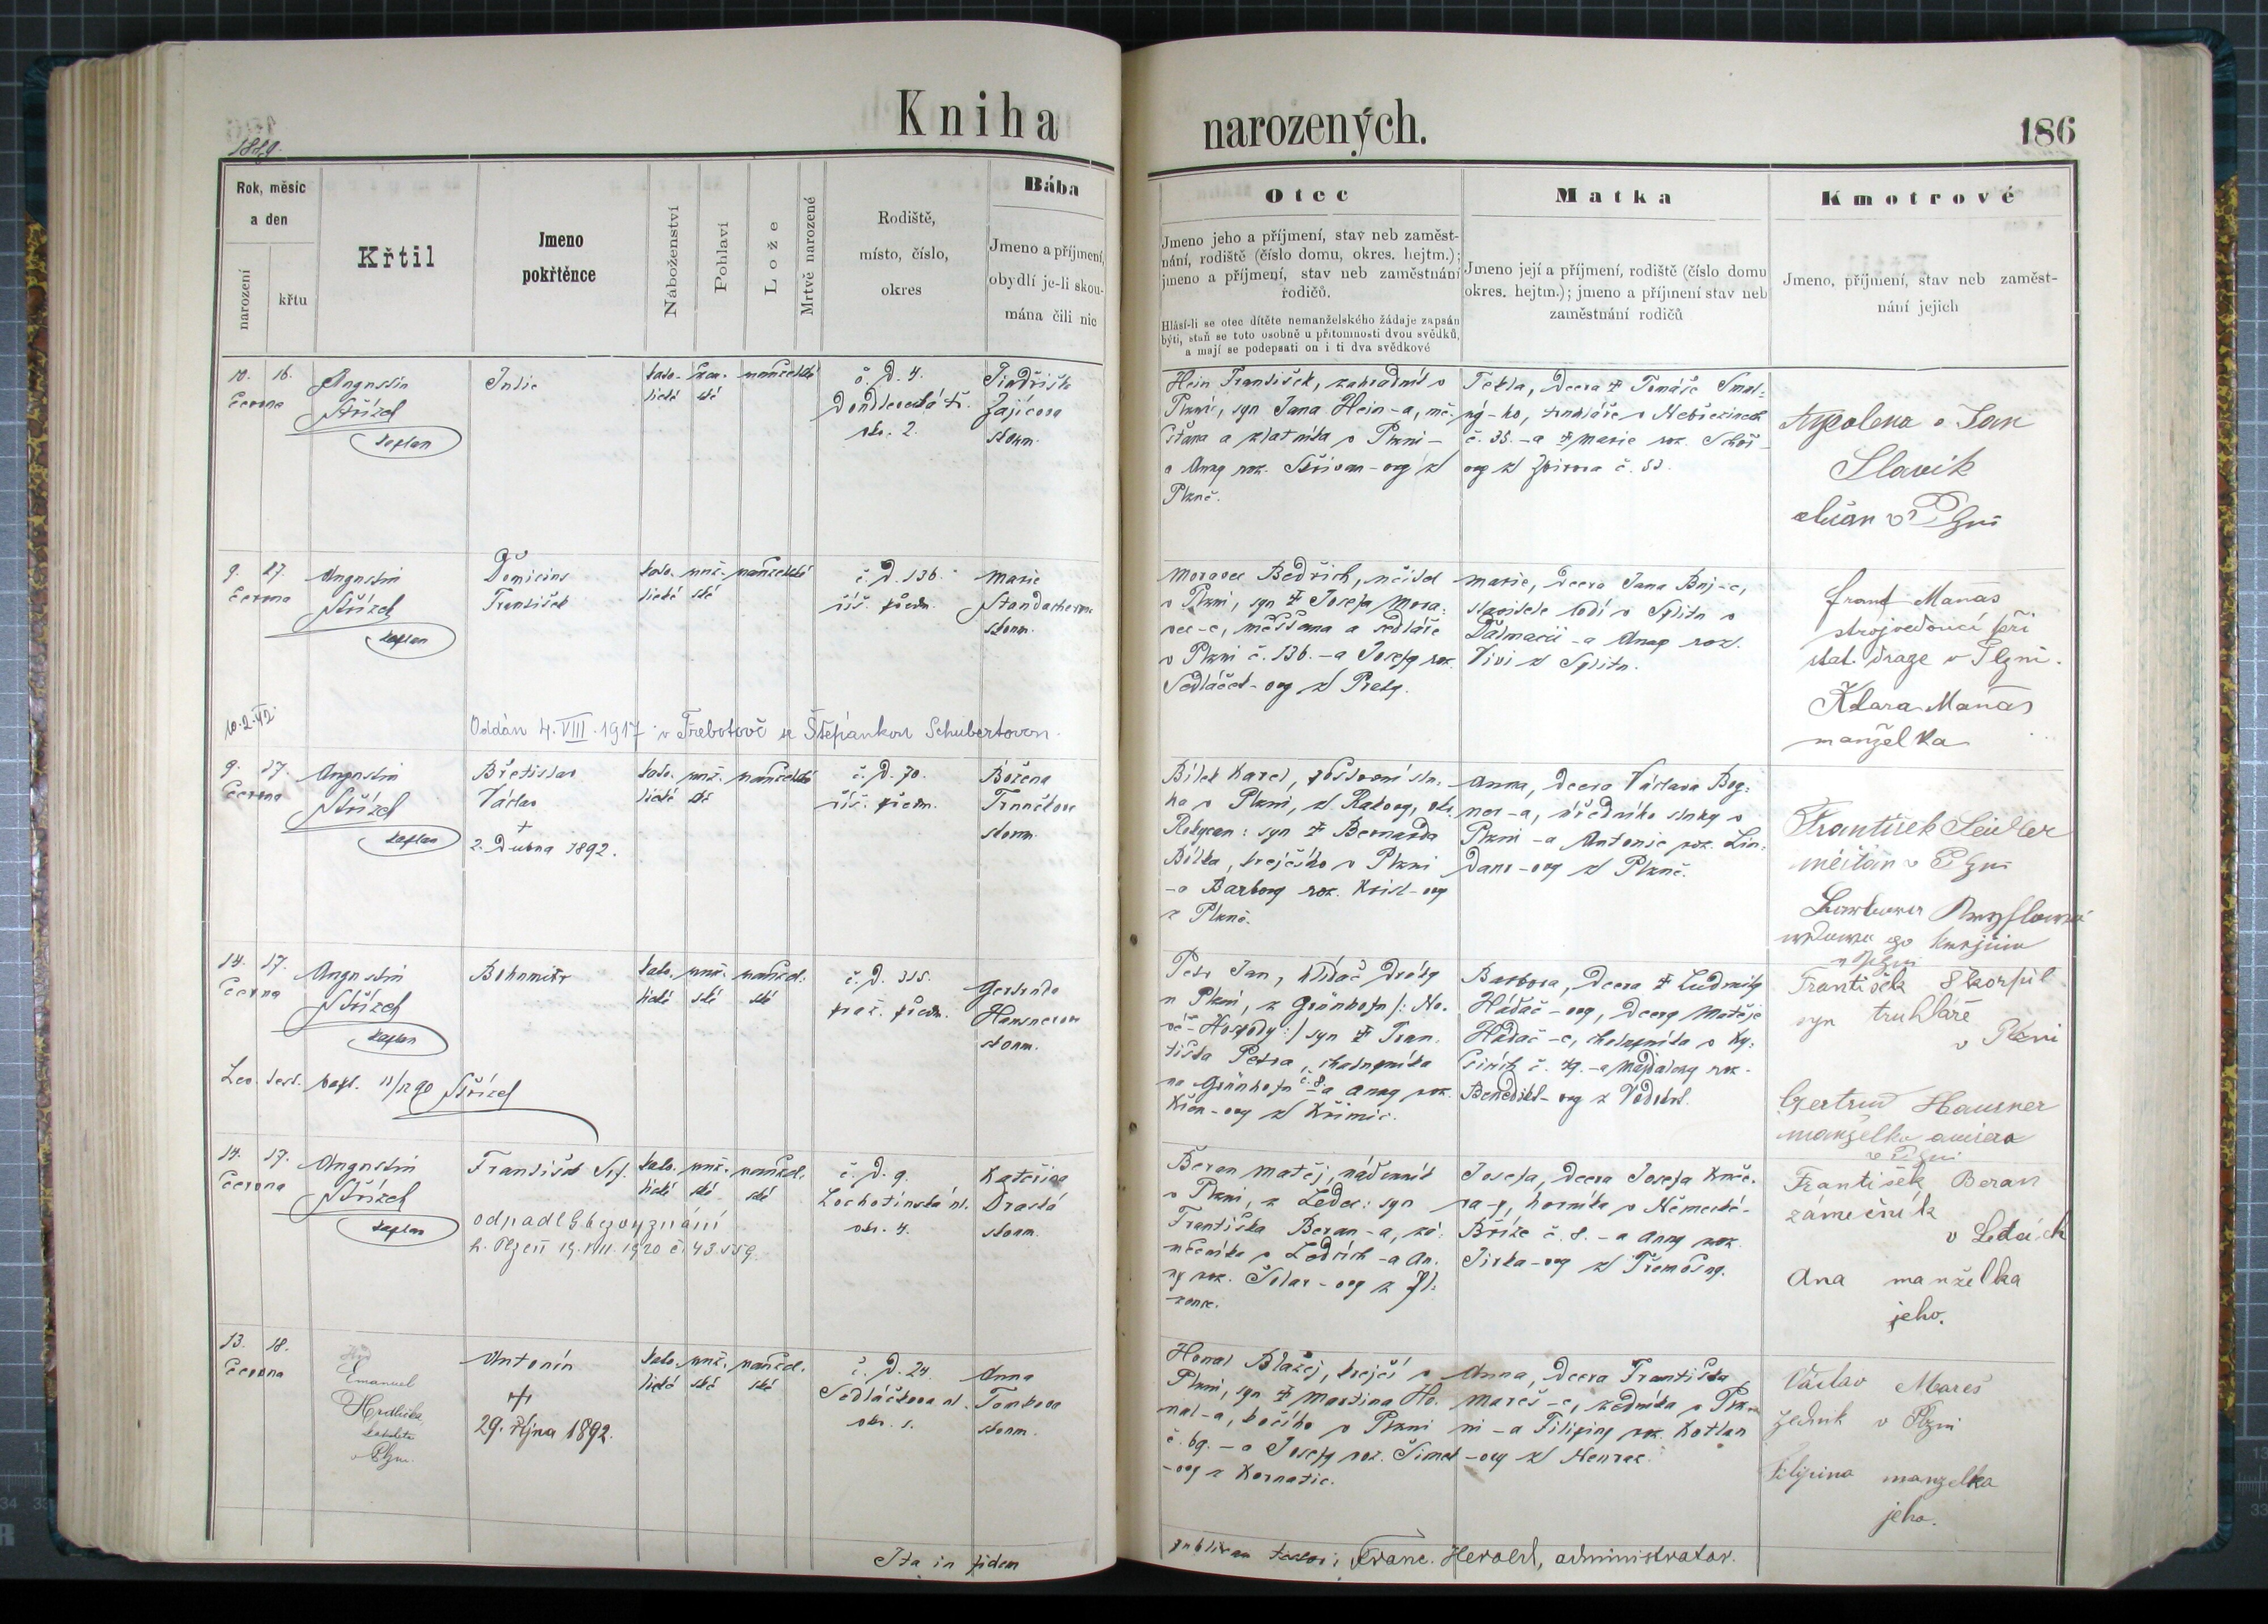 Kniha
narozených.
186
1889.
Rok, měsíc
a den
narození
křtu
Křtil
Jmeno
pokřtěnce
Náboženství
Pohlaví
Lože
Mrtvě narozené
Rodiště,
místo, číslo,
okres
Bába
Jmeno a příjmení,
obydlí je-li skou-
mána čili nic
Otec
Jmeno jeho a příjmení, stav neb zaměst-
nání, rodiště (číslo domu, okres. hejtm.);
jmeno a příjmení, stav neb zaměstnání
rodičů.
Hlásí-li se otec dítěte nemanželského žádaje zapsán
býti, staň se toto osobně u přítomnosti dvou svědků,
a mají se podepsati on i ti dva svědkové
Matka
Jmeno její a příjmení, rodiště (číslo domu
okres. hejtm.); jmeno a příjmení stav neb
zaměstnání rodičů
Kmotrové
Jmeno, příjmení, stav neb zaměst-
nání jejich
10. 16.
června
Augustin
Střízek
kaplan
Julie
kato- žen- manželské
lické ské
č. d. 4.
Doudlevecká tř.
okr. 2.
Jindřiška
Zajícova
zkoum.
Hein František, zahradník v
Plzni, syn Jana Hein-a, mě-
šťana a zlatníka v Plzni –
a Anny roz. Skřivan-ovy z
Plzně.
Tekla, dcera † Tomáše Smol-
ný-ho, truhláře v Nebřezinech
č. 35. – a † Marie roz.
ovy z Zbiroha č. 53.
Apolena a Jan
Slavík
v Plzni
9. 27.
června
Augustin
Střízek
kaplan
Domicius
František
kato- muž- manželské
lické ské
č. d. 136.
říš. předm.
Marie
zkoum.
Moravec Bedřich, učitel
v Plzni, syn † Josefa Mora-
vec-e, měšťana a sedláře
v Plzni č. 136. – a Josefy roz.
Sedláček-ovy z
Marie, dcera Jana
stavitele lodí v Splitu v
Dalmacii – a Anny roz.
Vivi z Splitu.
Frant Maňas
strojvedoucí při
stát. dráze v Plzni.
Klara Maňas
manželka
Oddán 4. VIII. 1917 v Třebotově se Štěpánkou Schubertovou.
9. 17.
června
Augustin
Střízek
kaplan
Břetislav
Václav
†
2. Dubna 1892.
kato- muž- manželské
lické ské
č. d. 70.
říš. předm.
Božena
Trnečkova
zkoum.
Bílek Karel, poštovní slu-
ha v Plzni, z Rakovy, okr.
Rokycan: syn † Bernarda
Bílka, krejčího v Plzni
– a Barbory roz. Krist-ovy
z Plzně.
Anna, dcera Václava Bog-
ner-a, úředního sluhy v
Plzni – a Antonie roz. Lin-
daur-ovy z Plzně.
František Seidler
měšťan v Plzni
v Plzni
14. 17.
června
Augustin
Střízek
kaplan
Bohumír
kato- muž- manžel-
lické ské ské
č. d. 315.
praž. předm.
Gertruda
Hausnerova
zkoum.
Lev. test. bapt. 11/12 90 Střízek
Petr Jan, hlídač dráhy
v Plzni, z Grünhofu /: No-
vé-Hospody :/ syn † Fran-
tiška Petra, chalupníka
na Grünhofu č. 8. a Anny roz.
-ovy z Křimic.
Barbora, dcera † Ludmily
Hádač-ovy, dcery Matěje
Hádač-e, chalupníka v Ky-
šicích č. 49. – a Majdaleny roz.
Benedikt-ovy z
František Škorpil
syn truhláře
v Plzni
Gertrud Hausner
manželka
v Plzni
14. 17.
června
Augustin
Střízek
kaplan
František Ser.
kato- muž- manžel-
lické ské ské
odpadl bez vyznání
h. Plzeň 19. VIII. 1920 č. 43.559.
č. d. 9.
Lochotínská ul.
okr. 4.
Kateřina
Drastá
zkoum.
Beran Matěj, nádenník
v Plzni, z Ledec: syn
Františka Beran-a, zá-
mečníka v Ledcích – a An-
ny roz. Šolar-ovy z
Josefa, dcera Josefa Kuče-
ra-y, horníka v Německé-
Bříze č. 8. – a Anny roz.
Jirka-ovy z Třemošny.
František Beran
zámečník
v Ledcích
Ana manželka
jeho.
13. 18.
června
Emanuel
Hrdlička
v Plzni
Antonín
†
29. října 1892.
kato- muž- manžel-
lické ské ské
č. d. 24.
Sedláčkova ul.
okr. 1.
Anna
Tomkova
zkoum.
Honal Blažej, krejčí v
Plzni, syn † Martina Ho-
nal-a, kočího v Plzni
č. 69. – a Josefy roz. Šimek
-ovy z Kornatic.
Anna, dcera Františka
Mareš-e, zedníka v Plz-
ni – a Filipiny roz. Kotlan
-ovy z
Václav Mareš
zedník v Plzni
Filipina manželka
jeho.
Ita in fidem
publicam testor: Franc. Herold, administrator.